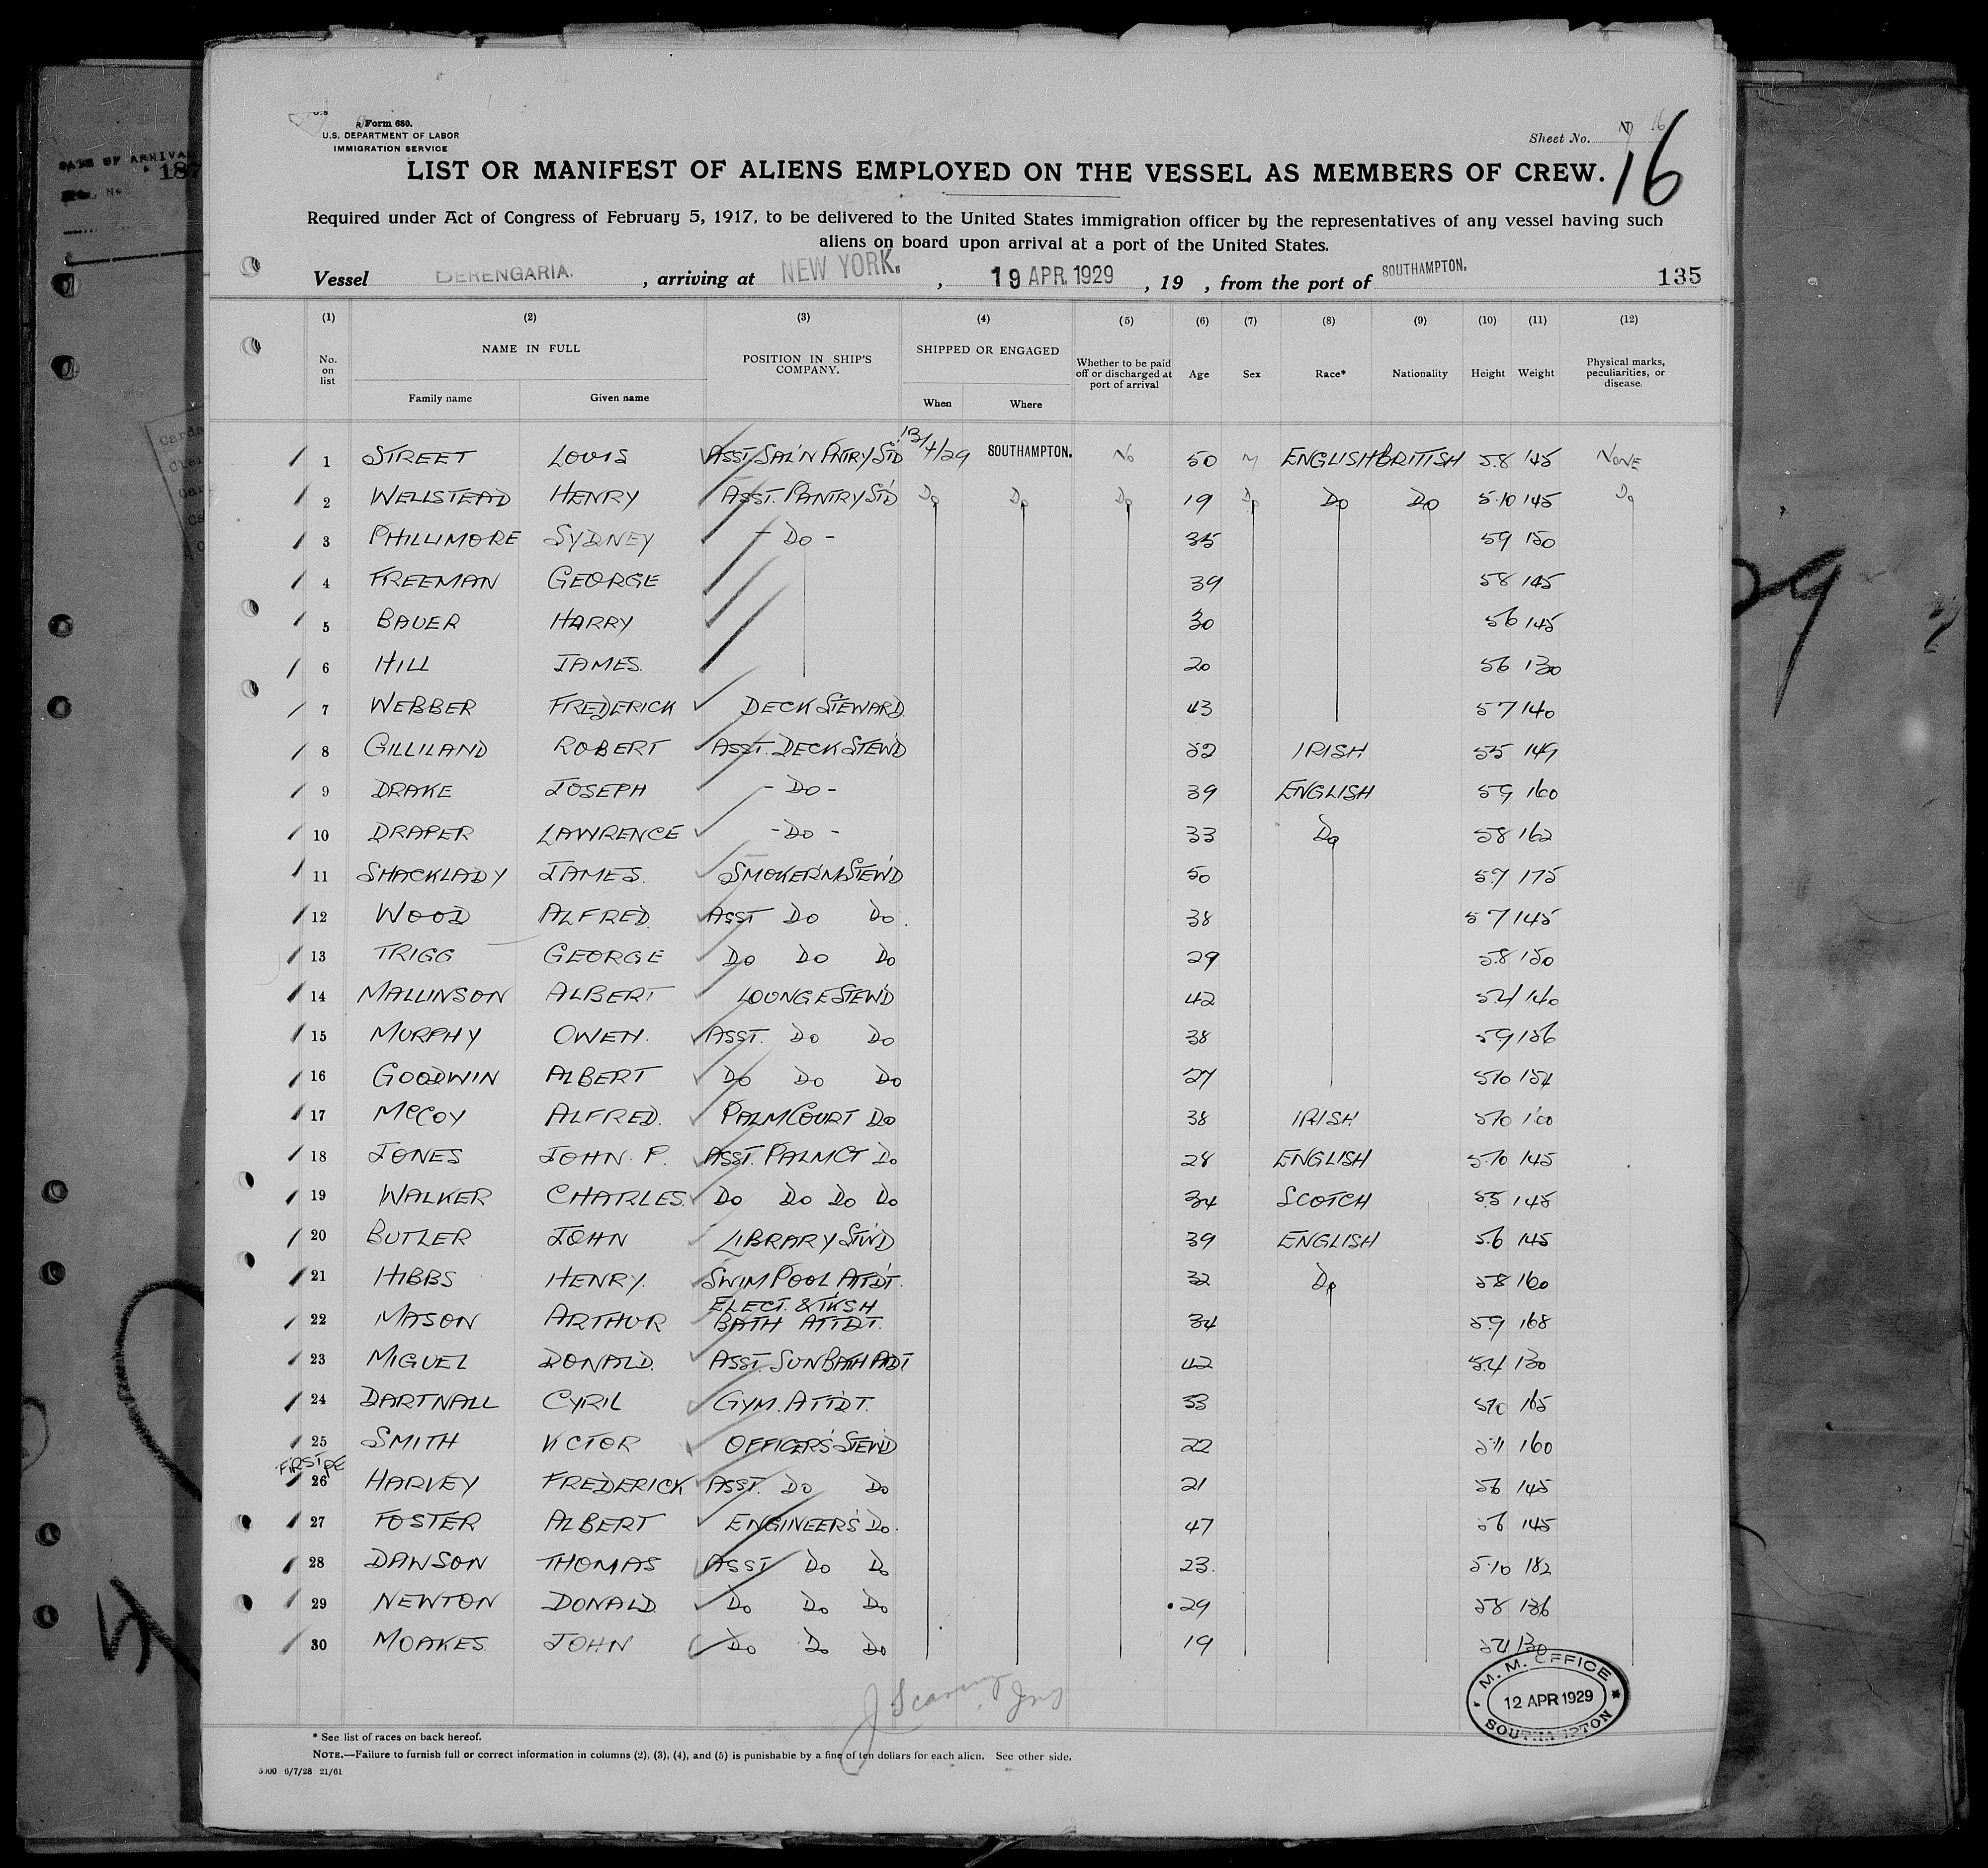 Form 680.
U.S. DEPARTMENT OF LABOR
IMMIGRATION SERVICE
Sheet No. 16
LIST OR MANIFEST OF ALIENS EMPLOYED ON THE VESSEL AS MEMBERS OF CREW. 16
Required under Act of Congress of February 5, 1917, to be delivered to the United States immigration officer by the representatives of any vessel having such
aliens on board upon arrival at a port of the United States.
Vessel BERENGARIA. , arriving at NEW YORK. , 19 APR. 1929 , 19 , from the port of SOUTHAMPTON. 135
(1) (2) (3) (4) (5) (6) (7) (8) (9) (10) (11) (12)
No. on list NAME IN FULL POSITION IN SHIP'S COMPANY. SHIPPED OR ENGAGED Whether to be paid off or discharged at port of arrival Age Sex Race* Nationality Height Weight Physical marks, peculiarities, or disease.
Family name Given name When Where
1 STREET LOUIS ASST. SAL'N PNTRY STD 13/4/29 SOUTHAMPTON. No 50 M ENGLISH BRITISH 5.8 145 NONE
2 WELLSTEAD HENRY ASST. PANTRY STD Do Do Do 19 Do Do Do 5.10 145 Do
3 PHILLIMORE SYDNEY - Do - 35 59 150
4 FREEMAN GEORGE 39 58 145
5 BAUER HARRY 30 56 145
6 HILL JAMES. 20 56 130
7 WEBBER FREDERICK DECK STEWARD 43 57 140
8 GILLILAND ROBERT ASST. DECK STEW'D 52 IRISH 55 149
9 DRAKE JOSEPH - Do - 39 ENGLISH 59 160
10 DRAPER LAWRENCE - Do - 33 Do 58 162
11 SHACKLADY JAMES. SMOKE R'M STEW'D 50 57 175
12 WOOD ALFRED. ASST Do Do. 38 57 145
13 TRIGG GEORGE Do Do Do 29 58 150
14 MALLINSON ALBERT LOUNGE STEW'D 42 54 140
15 MURPHY OWEN. ASST. Do Do 38 59 156
16 GOODWIN ALBERT Do Do Do 27 510 154
17 McCOY ALFRED. PALM COURT Do 38 IRISH 510 160
18 JONES JOHN P. ASST. PALM CT Do 28 ENGLISH 5.10 145
19 WALKER CHARLES. Do Do Do Do 34 SCOTCH 55 145
20 BUTLER JOHN LIBRARY STW'D 39 ENGLISH 5.6 145
21 HIBBS HENRY. SWIM POOL ATT'DT. 32 Do 58 160
22 MASON ARTHUR ELECT. & TKSH BATH ATT'DT. 34 59 168
23 MIGUEL DONALD. ASST. SUN BATH ATDT 42 5.4 130
24 DARTNALL CYRIL GYM. ATT'DT. 33 510 165
25 SMITH VICTOR OFFICERS' STEW'D 22 511 160
FIRST PE
26 HARVEY FREDERICK ASST. Do Do 21 56 145
27 FOSTER ALBERT ENGINEER'S Do. 47 56 145
28 DAWSON THOMAS ASST Do Do 23. 5.10 182
29 NEWTON DONALD. Do Do Do 29 58 136
30 MOAKES. JOHN Do Do Do 19 54 130
M. M. OFFICE
12 APR 1929
SOUTHAMPTON
* See list of races on back hereof.
NOTE.—Failure to furnish full or correct information in columns (2), (3), (4), and (5) is punishable by a fine of ten dollars for each alien. See other side.
5000 6/7/28 21/61